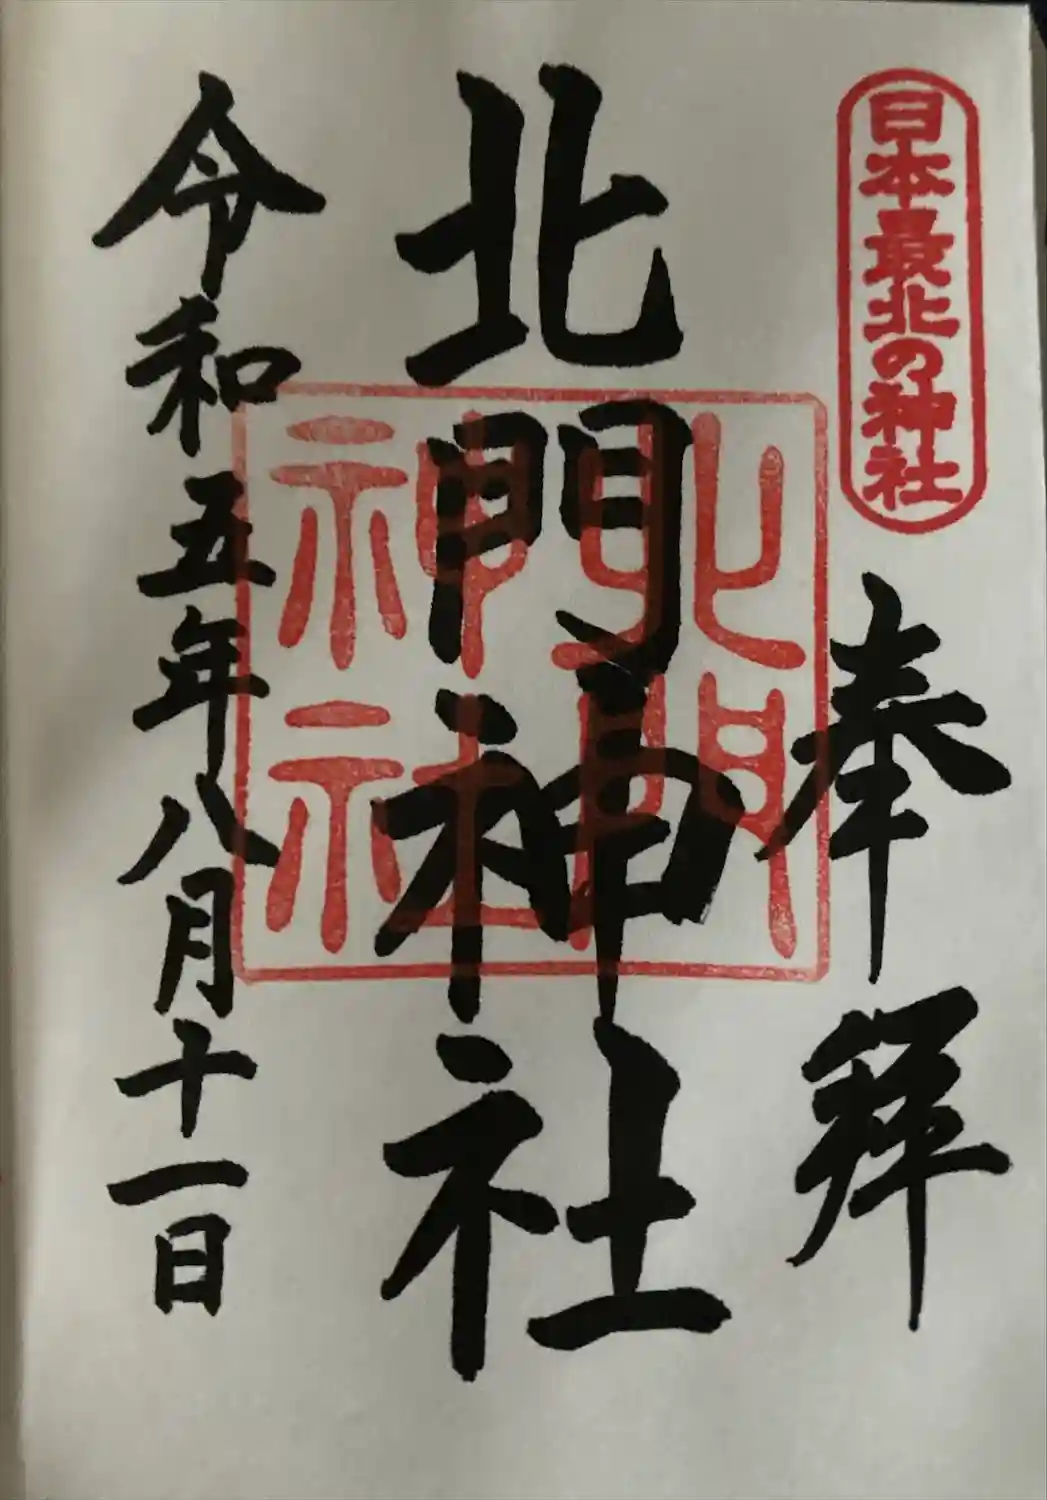 日本最北の神社
奉拝
北門神社
北門
神社
令和五年八月十一日